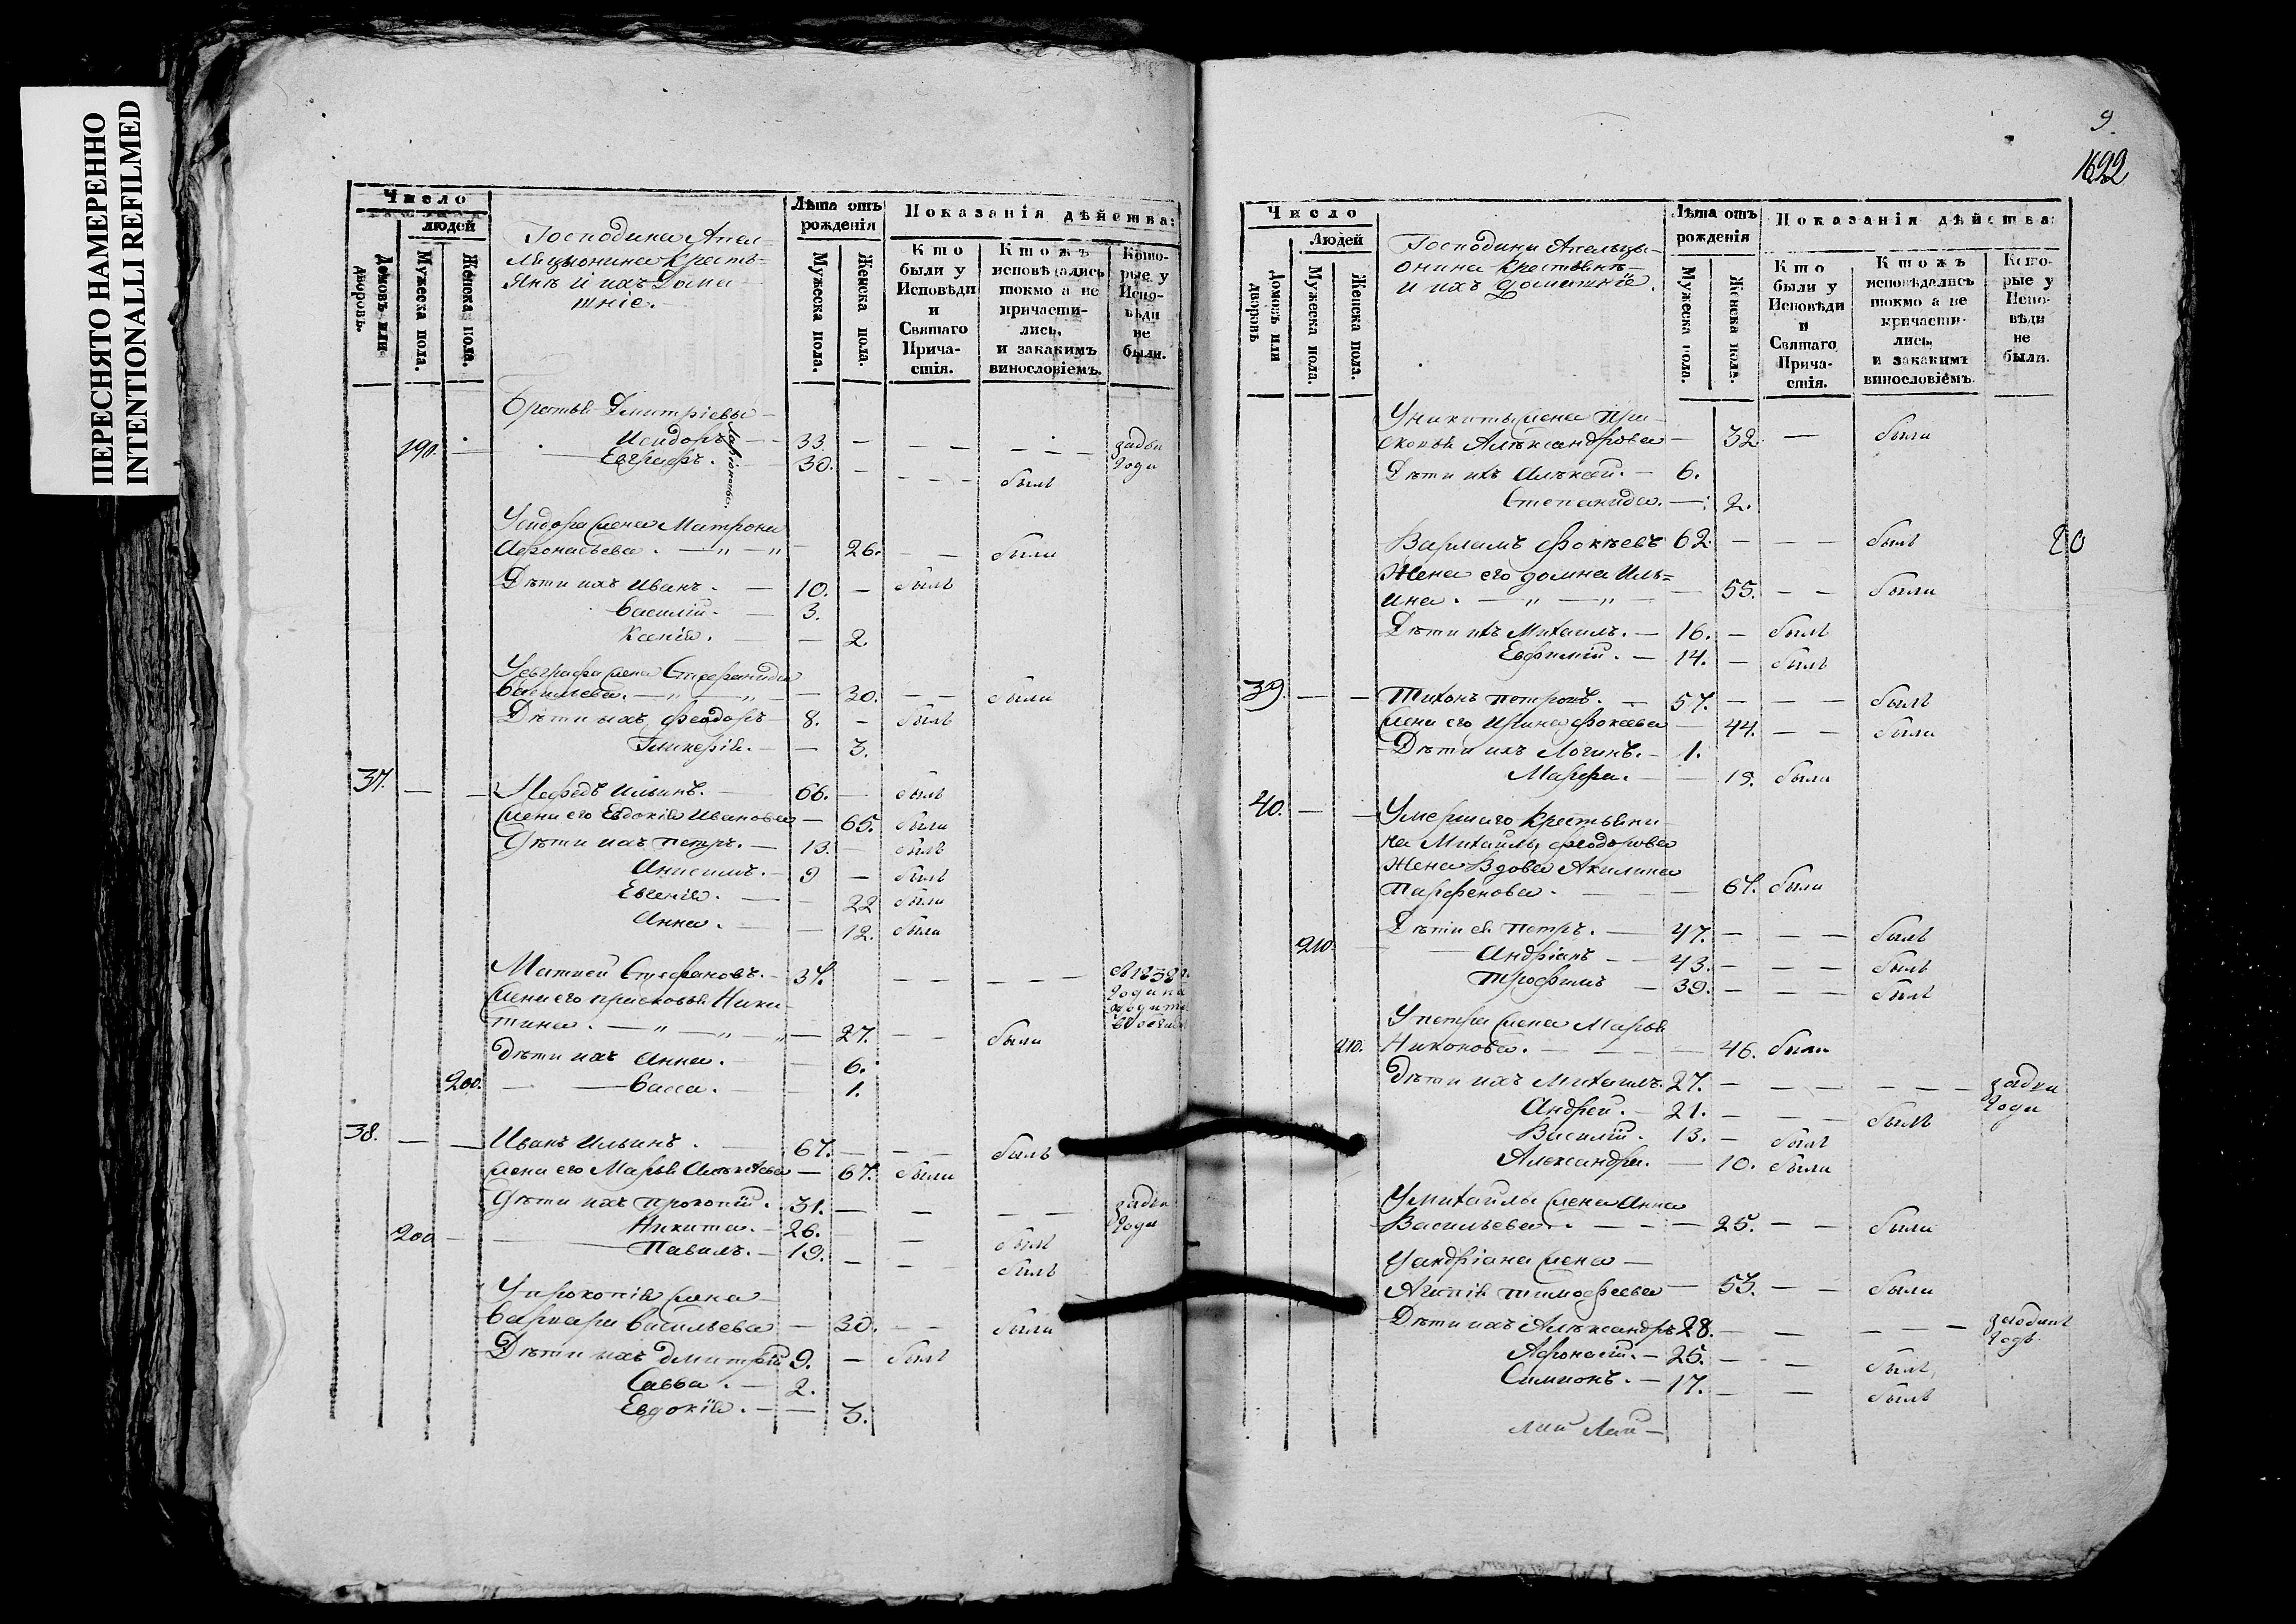 ПЕРЕСНЯТО НАМЕРЕННО
INTENTIONALLI REFILMED
Число
людей
Домовъ или дворовъ.
Мужеска пола.
Женска пола.
Господина Апел-
ляционина Кресть-
янъ и ихъ Дома-
шніе.
Лѣта отъ рожденія
Мужеска пола.
Женска пола.
Показанія дѣйства:
Кто были у Исповѣди и Святаго Прича-стія.
Ктожъ исповѣдались токмо а не причасти-лись, и закакимъ винословіемъ.
Кото-рые у Испо-вѣди не были.
Братья Дмитріевы
Исидоръ 33. — — — задва года
190. Евграфъ. 30. — — — былъ
Уисидора жена Матрона
Афонасьева. — 26. — — была
Дѣти ихъ Иванъ. — 10. — былъ
Василій. — 3.
Ксенія. — 2.
Уевграфа жена Стефанида
Васильева. — 30. — — была
Дѣти ихъ Феодоръ 8. — былъ
Гликерія. — 3.
37. — — Нефедъ Ильинъ. 66. — былъ
Жена его Евдокія Иванова — 65. была
Дѣти ихъ Петръ. — 13. — былъ
Анисимъ. — 9 — былъ
Евгенія. — 22 была
Анна. — 12. была
Матвей Стефановъ. — 34. — —
Жена его Прасковья Ники-
тина. — 27. — — была
Дѣти ихъ Анна. — 6.
200. — Васса. — 1.
38. — — Иванъ Ильинъ. 67. — — былъ
Жена его Марья Алексѣева — 67. была
Дѣти ихъ Прокопій. 31. — — — задва года
Никита. — 26. — былъ
200 — Павелъ. — 19. — — былъ
Упрокопія жена
Варвара Васильева — 30. — — была
Дѣти ихъ Дмитрій 9. — былъ
Савва. — 2.
Евдокія. — — 3.
9.
1692
Число
Людей
Домовъ или дворовъ
Мужеска пола.
Женска пола.
Господина Апельцы-
онина Крестьянъ
и ихъ домашніе.
Лѣта отъ рожденія
Мужеска пола.
Женска пола.
Показанія дѣйства:
Кто были у Исповѣди и Святаго Прича-стія.
Ктожъ исповѣдались токмо а не причасти-лись, и закакимъ винословіемъ.
Кото-рые у Испо-вѣди не были.
Уникиты жена Пра-
сковья Алѣксандрова — 32 — была
Дѣти ихъ Алѣксѣй. — 6.
Степанида. — 2.
Варламъ Фокѣевъ 62. — — — былъ
20
Жена его Домна Иль-
ина. — 55. — — была
Дѣти ихъ Михаилъ. — 16. — былъ
Евфимій. — 14. — былъ
39. — — Тихонъ Петровъ. — 57. — — — былъ
Жена его Ирина Фокѣева — 44. — — была
Дѣти ихъ Логинъ. — 1.
Марфа. — — 19. была
40. — — Умершаго Крестьяни-
на Михаилы Феодорова
Жена Вдова Акилина
Парфенова. — — 64. была
Дѣти ея Петръ. — 47. — — — былъ
210. — Андріанъ — 43. — — — былъ
Трофимъ — 39. — — — былъ
Упетра жена Марья
210. Никонова. — — — 46. была
Дѣти ихъ Михаилъ. 27. — — — — — задва года
Андрей. — 21. — — — былъ
Василій. 13. — былъ
Алѣксандра. — 10. была
Умихаилы жена Анна
Васильева. — — — 25. — — была
Уандріана жена —
Агапія Тимофеева — 53. — — была
Дѣти ихъ Алѣксандръ 28. — — — — заодинъ годъ
Афонасій. — 25. — — былъ
Симионъ. — 17. — — былъ